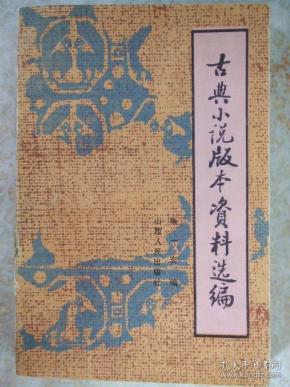 古典小说版本资料选编
朱一玄编
山西人民出版社
孔夫子旧书网